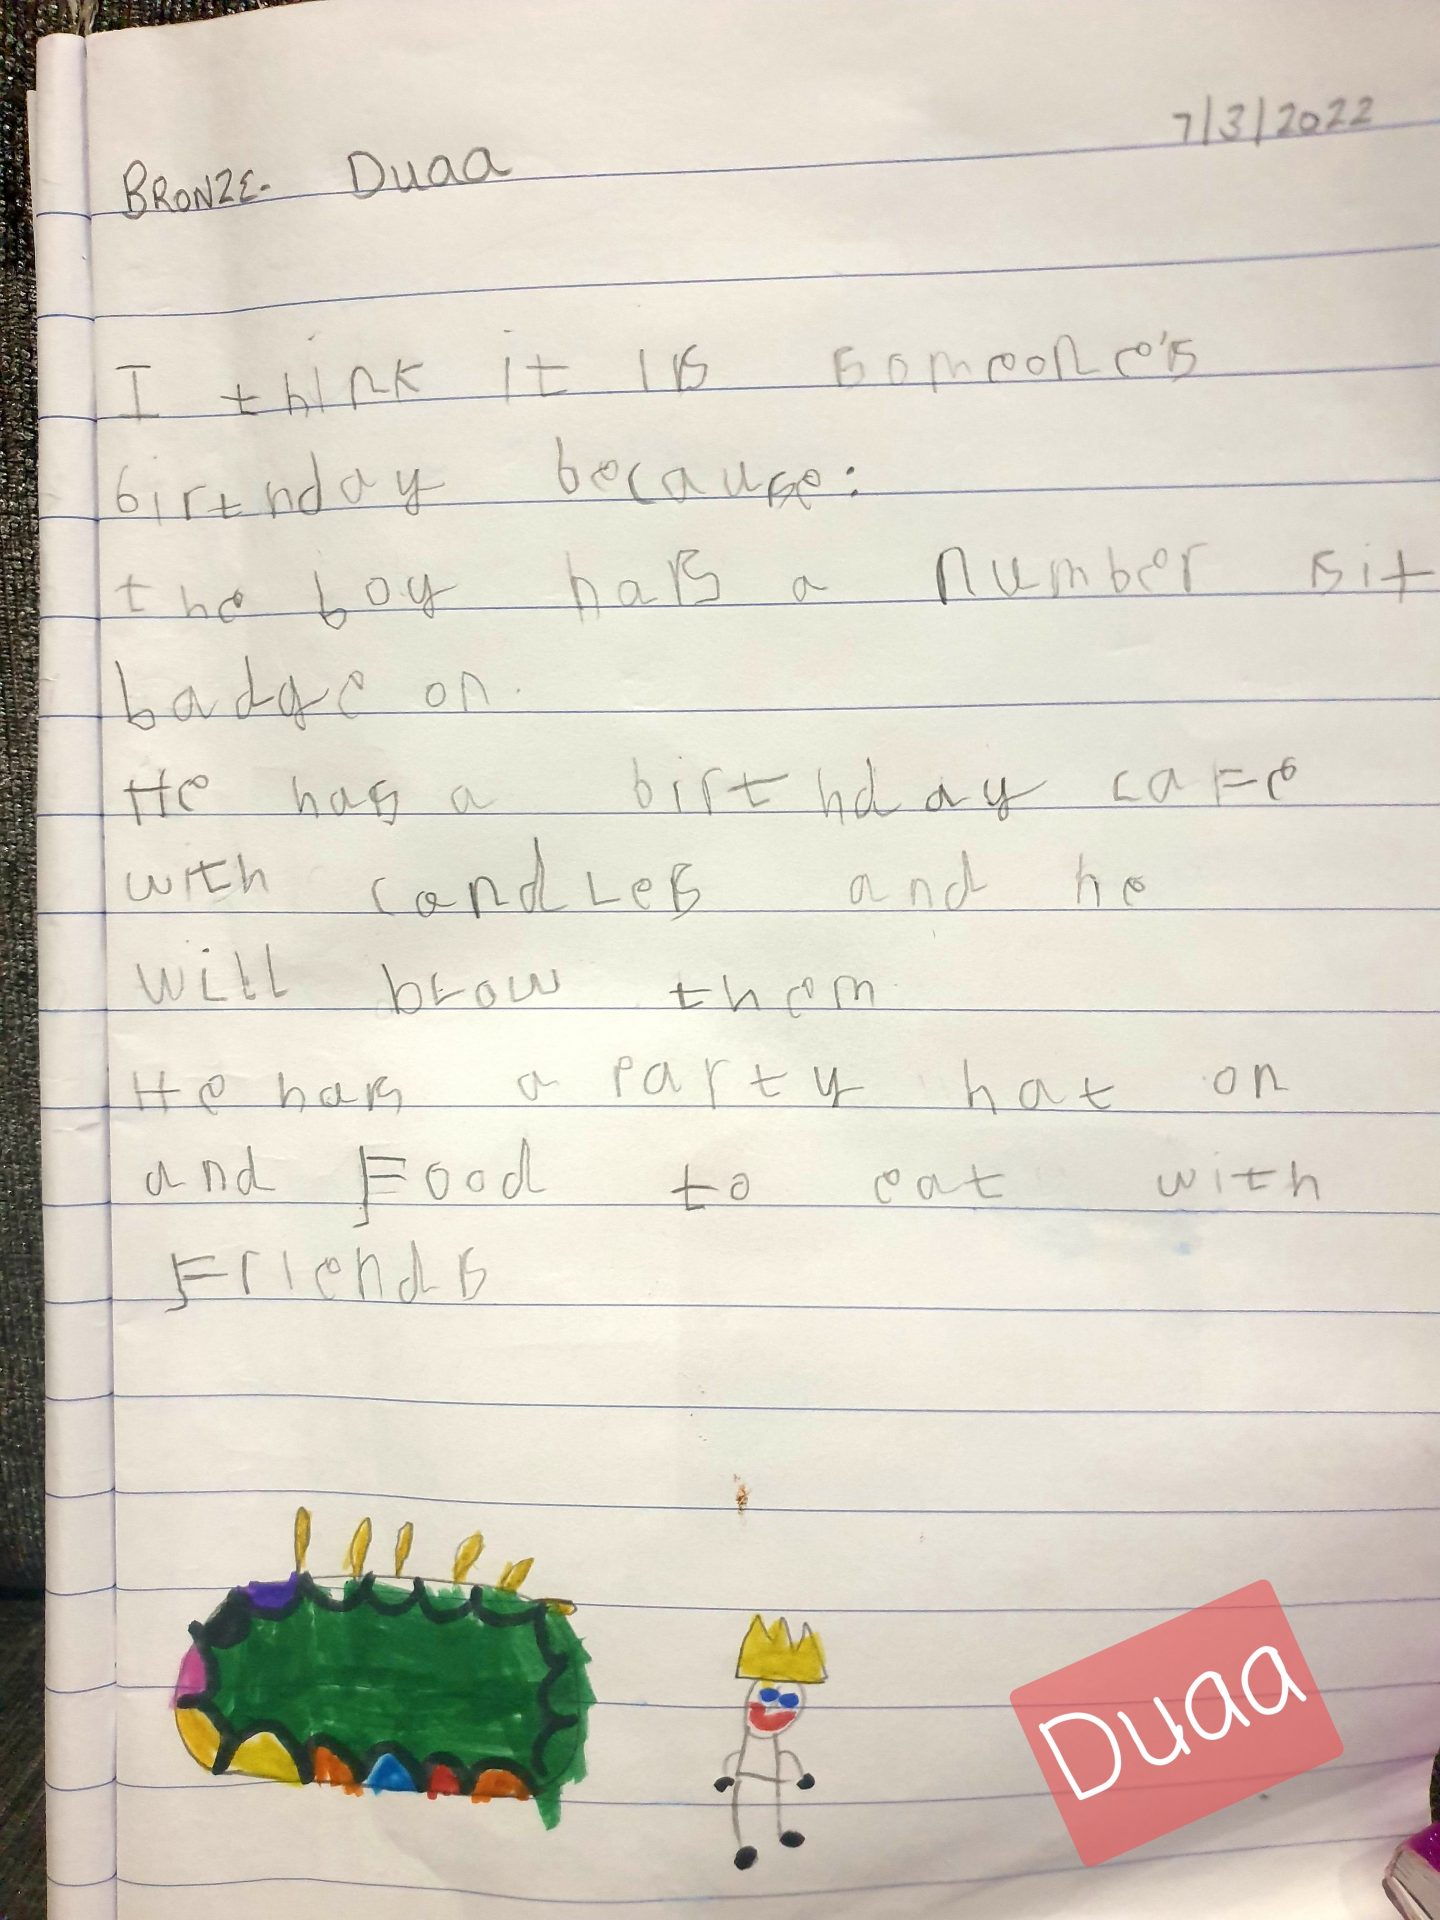 7/3/2022
BRONZE- Duaa
I think it is someone's
birthday because:
the boy has a number sit
badge on.
He has a birthday cafe
with candles and he
will blow them
He has a party hat on
and Food to eat with
Friends
Duaa